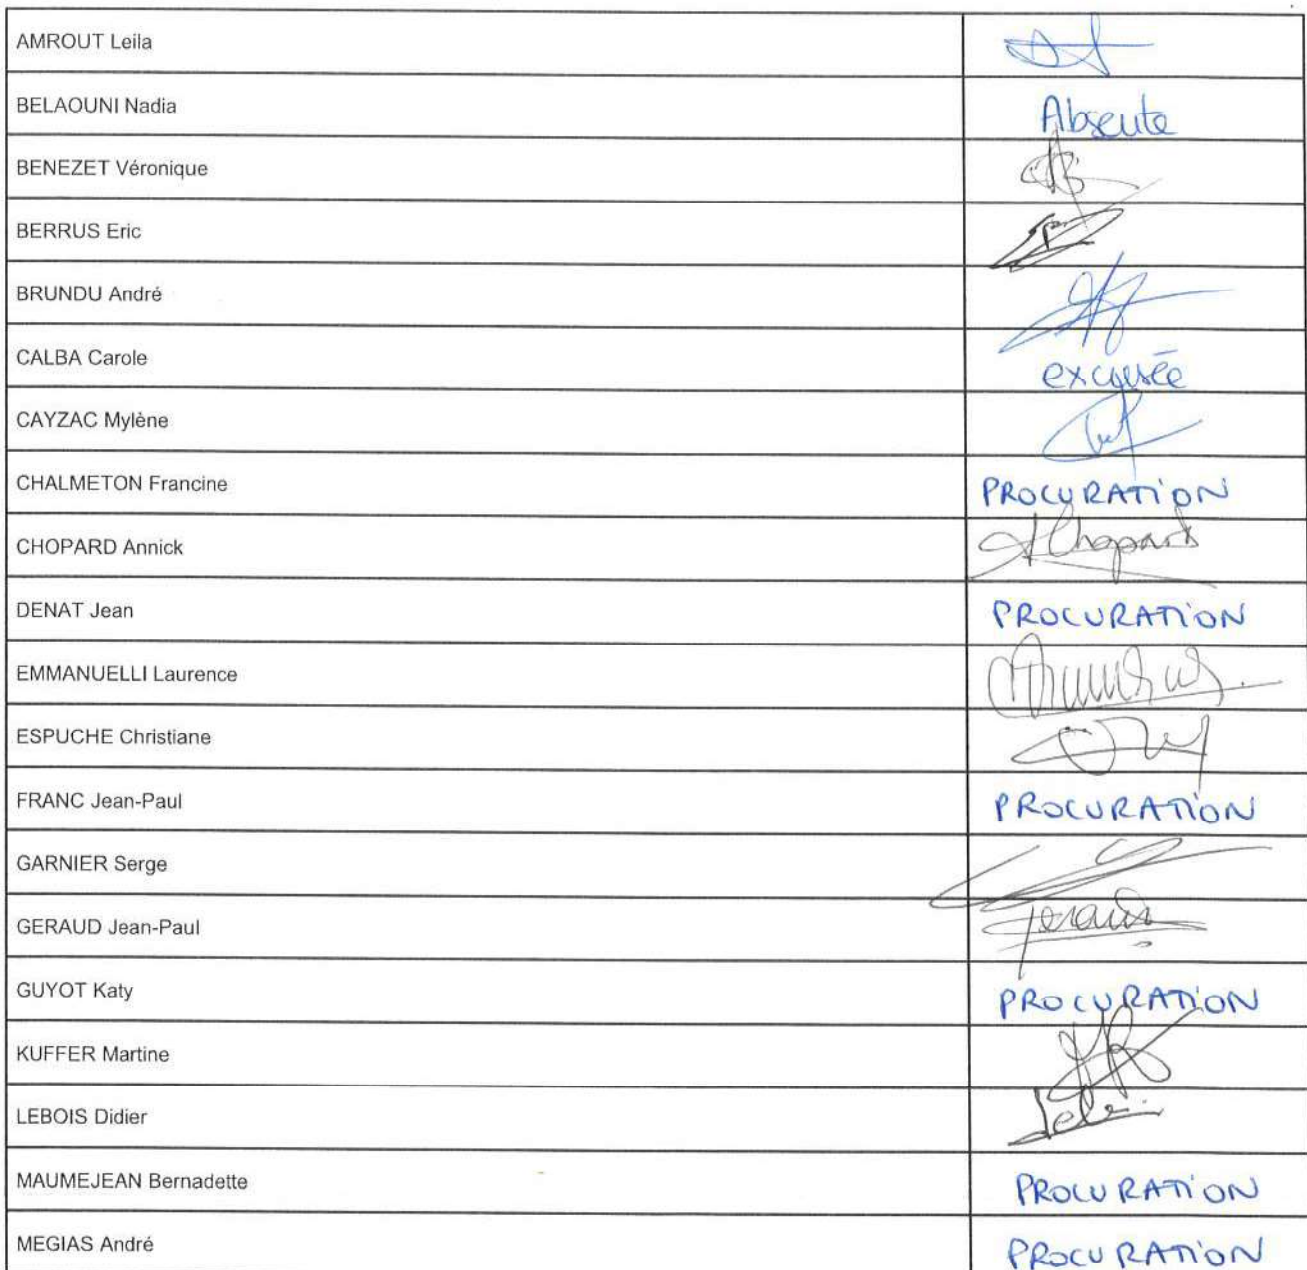 AMROUT Leila
BELAOUNI Nadia Absente
BENEZET Véronique
BERRUS Eric
BRUNDU André
CALBA Carole excusée
CAYZAC Mylène
CHALMETON Francine PROCURATION
CHOPARD Annick Chopard
DENAT Jean PROCURATION
EMMANUELLI Laurence
ESPUCHE Christiane
FRANC Jean-Paul PROCURATION
GARNIER Serge
GERAUD Jean-Paul Geraud
GUYOT Katy PROCURATION
KUFFER Martine
LEBOIS Didier
MAUMEJEAN Bernadette PROCURATION
MEGIAS André PROCURATION